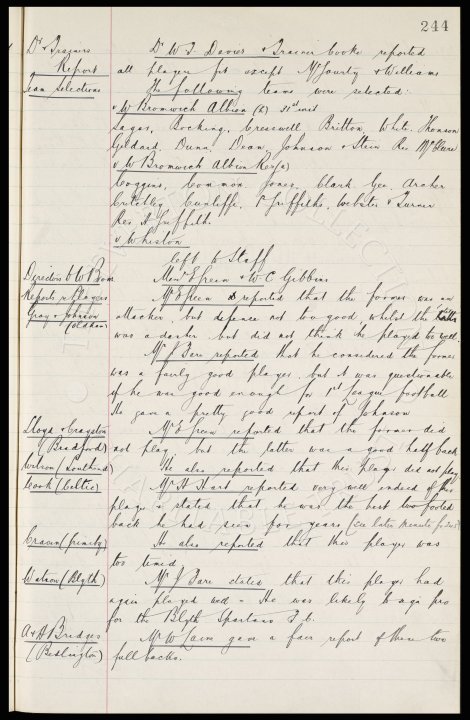 244
Dr & Trainers Dr W. J. Davies & Trainer Cooke reported
Report all players fit except McGourty & Williams
Team Selections The following teams were selected:
v W Bromwich Albion (h) 31st inst
Sagar, Bocking, Cresswell, Britton, White, Thomson
Geldard, Dunn, Dean, Johnson & Stein Res McClure
v W Bromwich Albion Res (a)
Coggins, Common Jones, Clark Gee Archer
Critchley Cunliffe, Griffiths, Webster & Turner
Res A Griffith.
v Whiston
left to Staff
Directors to W B Messrs E Green & W. C. Gibbins
Reports re Players Mr E Green reported that the former was an
Gray & Johnson attacker but defence not too good whilst the latter
(Oldham) was a dasher but did not think he played so well
Mr J Bare reported that he considered the former
was a fairly good player but it was questionable
if he was good enough for 1st League football
He gave a pretty good report of Johnson
Lloyd & Grayston Mr E Green reported that the former did
(Bradford) not play but the latter was a good half back
Wilson (Southend) He also reported that this player did not play
Cook (Celtic) Mr H Hart reported very well indeed of this
player & stated that he was the best two footed
back he had seen for years (see later minute
Craven (Grimsby) He also reported that this player was
too timid.
Watson (Blyth) Mr J Bare stated that this player had
again played well - He was likely to again pro
for the Blyth Spartans F. C.
A & H Bridges Mr W gave a fair report of these two
(Bedlington) full backs.